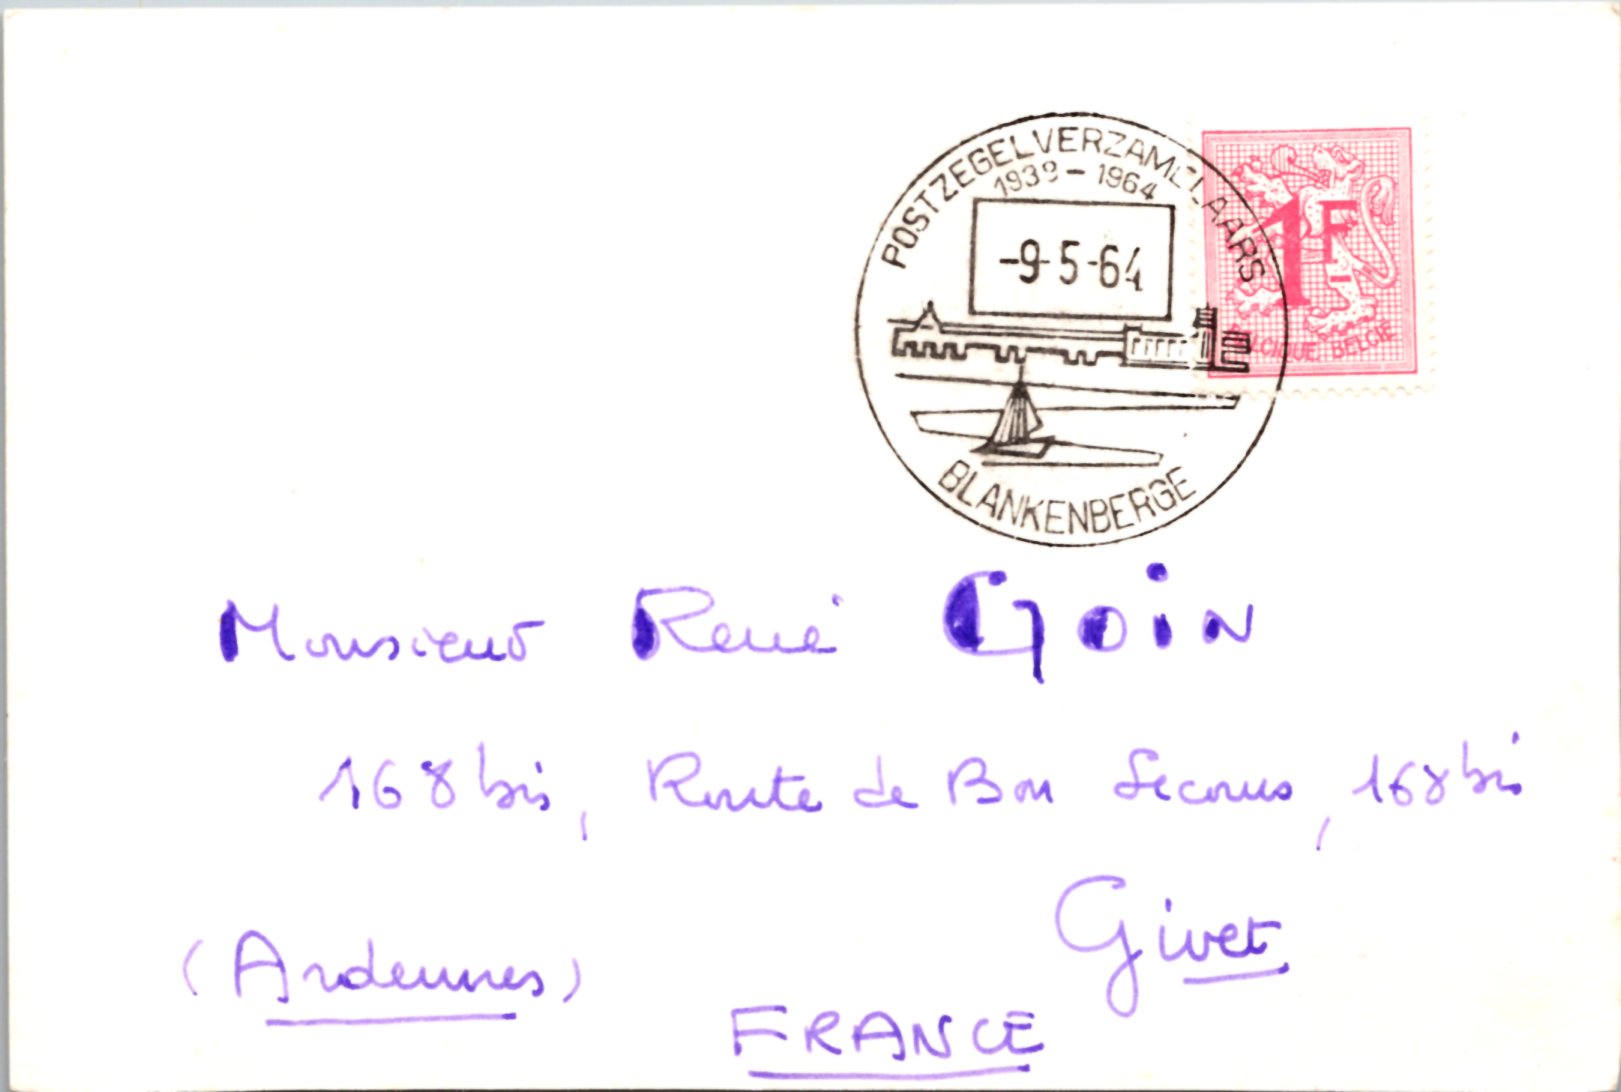 POSTZEGELVERZAMELAARS
1939 - 1964
-9-5-64
BLANKENBERGE
1F
BELGIQUE BELGIË
Monsieur René GOiN
168 bis, Route de Bon Secours, 168 bis
Givet
(Ardennes)
FRANCE